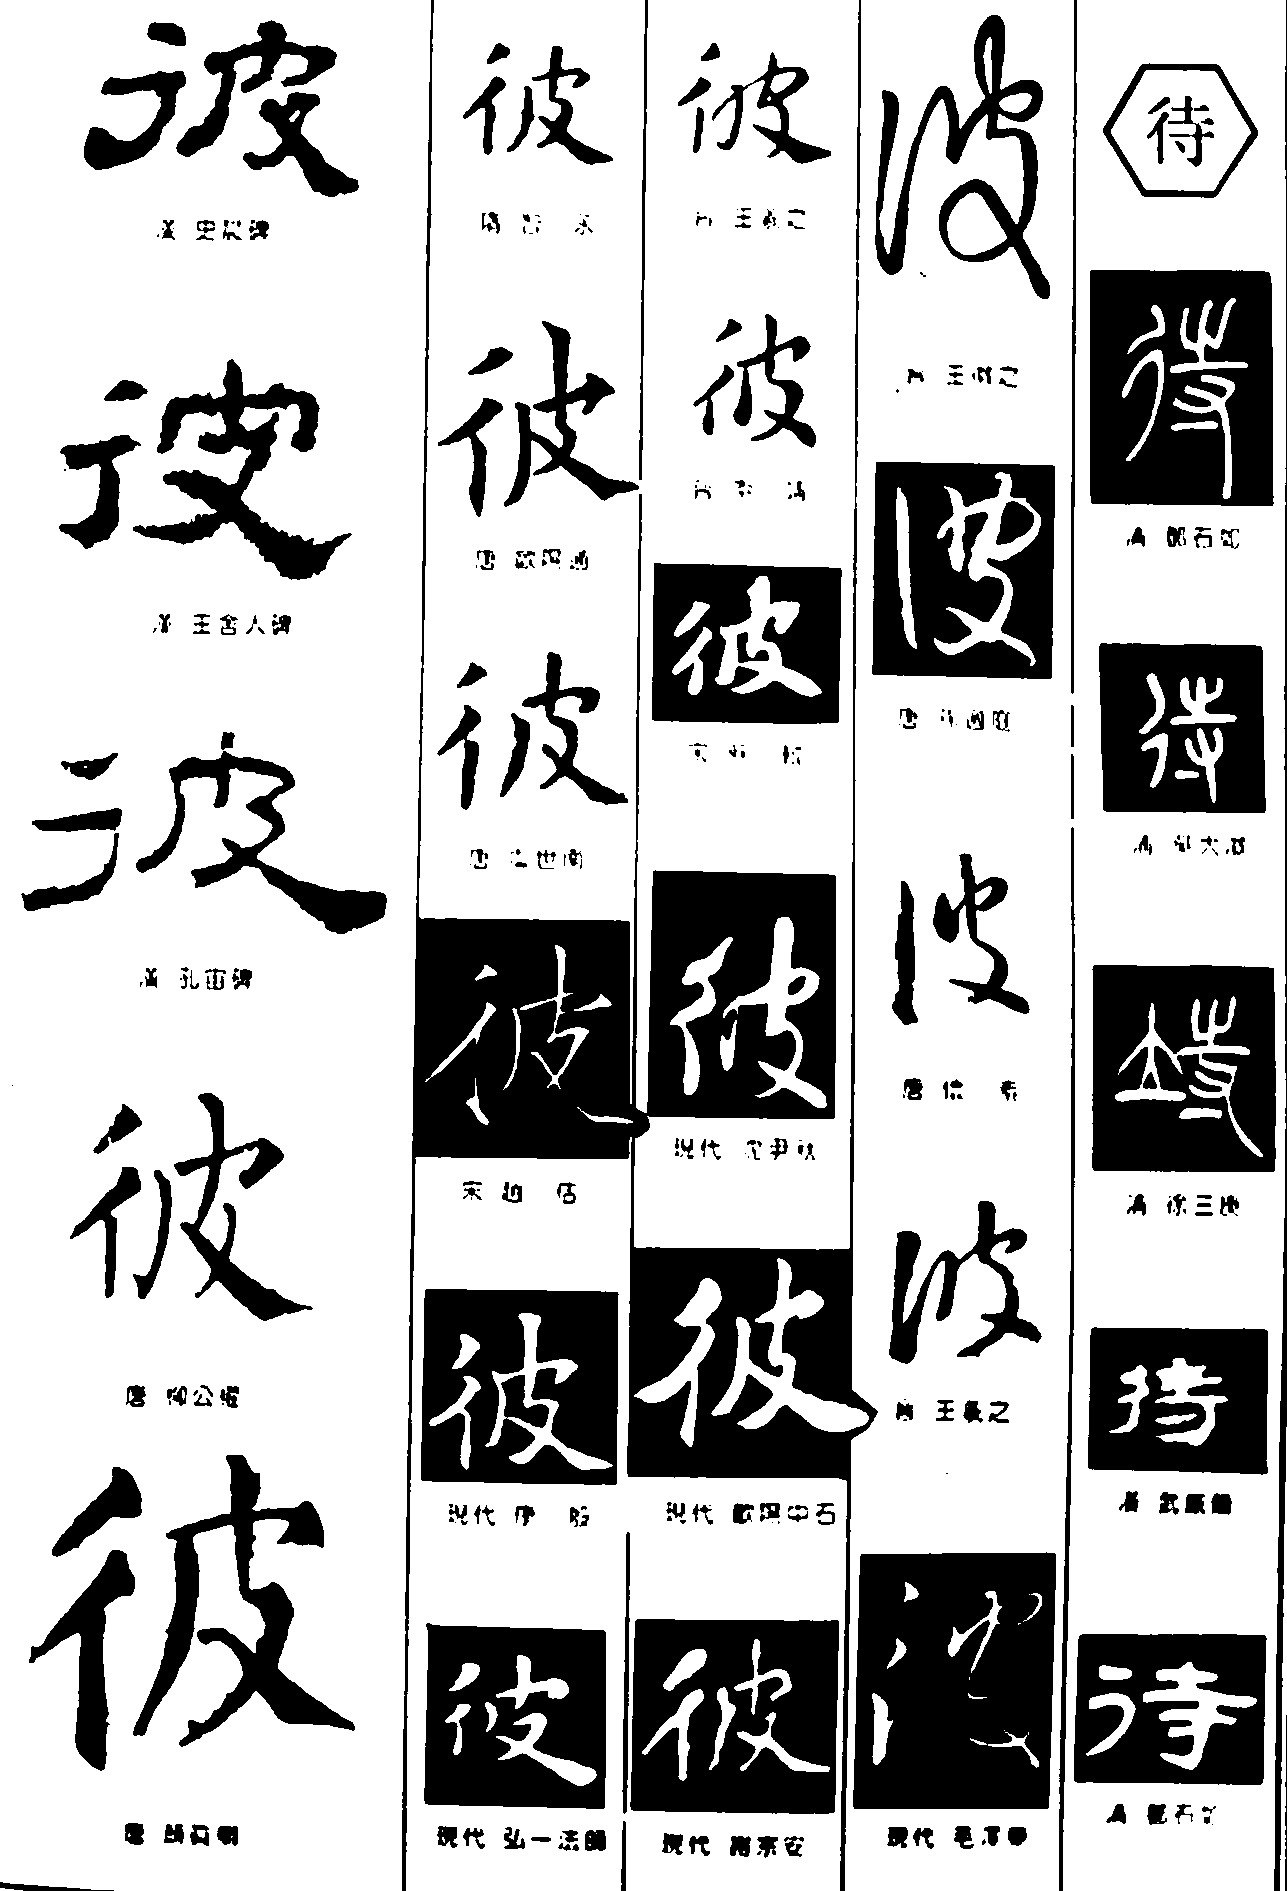 彼
漢 史晨碑
彼
漢 王舍人碑
彼
漢 孔宙碑
彼
唐 柳公權
彼
唐 顏真卿
彼
隋 智 永
彼
唐 歐陽通
彼
唐 虞世南
彼
宋 趙 佶
彼
現代 伊
彼
現代 弘一法師
彼
晉 王羲之
彼
彼
宋
彼
現代 沈尹秋
彼
現代 歐陽中石
彼
現代
彼
晉 王獻之
彼
唐 孫過庭
彼
唐 懷 素
彼
晉 王羲之
彼
現代 毛澤東
待
待
清 鄧石如
待
清
待
清 徐三庚
待
漢 武威簡
待
清 鄧石如